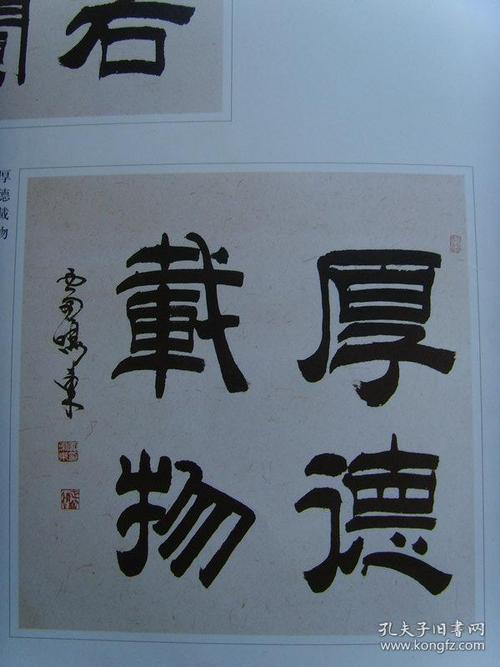 石
厚德
載物
厚德載物
孔夫子旧书网
www.kongfz.com